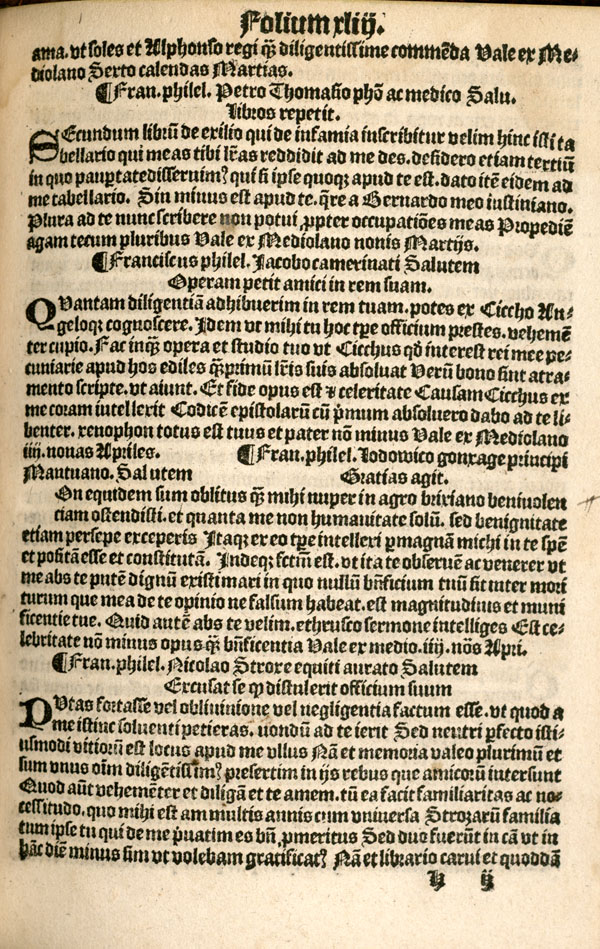 Folium xliij.
ama. vt soles et Alphonso regi q̃ȝ diligentissime commẽda Vale ex Me⸗
diolano Sexto calendas Martias.
¶Fran. philel. Petro Thomasio phõ ac medico Salu.
Libros repetit.
SEcundum librũ de exilio qui de infamia inscribitur velim hinc isti ta
bellario qui meas tibi lr̃as reddidit ad me des. desidero etiam tertiũ
in quo paupertate disseruimꝰ qui si ipse quoqȝ apud te est. dato itẽ eidem ad
me tabellario. Sin minus est apud te. q̃re a Bernardo meo iustiniano.
Plura ad te nunc scribere non potui ꝓpter occupatiões meas Propediẽ
agam tecum pluribus Vale ex Mediolano nonis Martijs.
¶Franciscus philel. Iacobo camerinati Salutem
Operam petit amici in rem suam.
QVantam diligentiã adhibuerim in rem tuam. potes ex Ciccho An⸗
geloqȝ cognoscere. Idem vt mihi tu hoc tp̃e officium prestes. vehemẽ
ter cupio. Fac inq̃ȝ opera et studio tuo vt Cicchus qd̃ interest rei mee pe⸗
cuniarie apud hos ediles q̃ȝprimũ lr̃is suis absoluat Verũ bono sint atra⸗
mento scripte. vt aiunt. Et fide opus est ⁊ celeritate Causam Cicchus ex
me coram intellexit Codicẽ epistolarũ cũ pͥmum absoluero dabo ad te li⸗
benter. xenophon totus est tuus et pater nõ minus Vale ex Mediolano
iiij. nonas Apriles. ¶Fran. philel. Lodowico gonxage principi
Mantuano. Salutem Gratias agit.
On equidem sum oblitus q̃ȝ mihi nuper in agro brixiano beniuolen
ciam ostendisti. et quanta me non humanitate solũ. sed benignitate
etiam persepe exceperis Itaqȝ ex eo tp̃e intellexi ꝑmagnã michi in te spẽ
et positã esse et constitutã. Indeqȝ fctm̃ est. vt ita te obseruẽ ac venerer vt
me abs te putẽ dignũ existimari in quo nullũ bñficium tuũ sit inter mori
turum que mea de te opinio ne falsum habeat. est magnitudinis et muni
ficentie tue. Quid autẽ abs te velim. ethrusco sermone intelliges Est ce⸗
lebritate nõ minus opus q̃ȝ bñficentia Vale ex medio. iiij. nõs Apri.
¶Fran. philel. Nicolao Stroxe equiti aurato Salutem
Excusat se ꝙ distulerit officium suum
PVtas fortasse vel obliuinione vel negligentia factum esse. vt quod a
me istinc soluenti petieras. nondũ ad te ierit Sed neutri ꝑfecto isti⸗
usmodi vitiorũ est locus apud me vllus Nã et memoria valeo plurimũ et
sum vnus oĩm diligẽtissimꝰ presertim in ijs rebus que amicorũ intersunt
Quod aũt vehemẽter et diligã et te amem. tũ ea facit familiaritas ac ne⸗
cessitudo. quo mihi est am multis annis cum vniuersa Strozarũ familia
tum ipse tu qui de me pͥuatim es bñ ꝓmeritus Sed due fuerũt in cã vt in
hãc diẽ minus sim vt volebam gratificatꝰ Nã et librario carui et quoddã
h ij